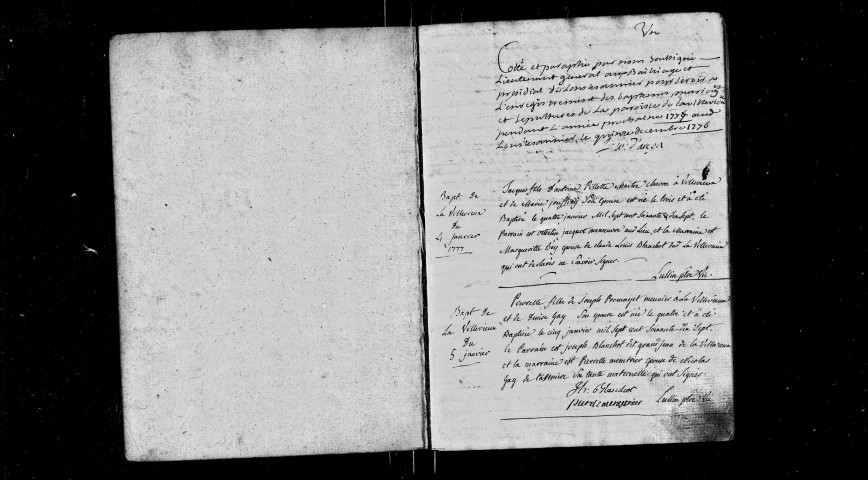 Un
Cotté et paraphée par nous soussigné
Lieutenant général au Bailliage et
présidial de Lonslesaunier pour servir à
L'enregistrement des baptemes, mariages
et sepultures de La paroisse de Lavillevieux
pendant L'année prochaine 1777
Lonslesaunier, le quinze decembre 1776
Bapt de
La Villevieux
du
4 janvier
1777
Jacques fils d'antoine Pillotte Maitre charon à Villevieux
et de Marie Son epouse est né le trois et a eté
Baptisé le quatre janvier Mil Sept cent soixante dix Sept, le
Parrain est jacquot manoeuvre aud Lieu, et la Marraine est
Marguerite épouse de claude Louis Blanchot dud La Villevieux
qui ont declarés ne Scavoir Signer.
Lullin ptre Vic.
Bapt de
La Villevieux
Du
5 janvier
Pierrette fille de Joseph Promayet meunier à La Villevieux
et de Denise Gay Son epouse est née le quatre et a eté
Baptisée le cinq janvier mil Sept cent soixante dix Sept,
le Parrain est joseph Blanchot dit grand jean de la Villevieux
et la marraine est Pierrette menetrier epouse de Nicolas
Gay de Sa tante maternelle qui ont Signés
Blanchot
pierrete menetrier Lullin ptre Vic